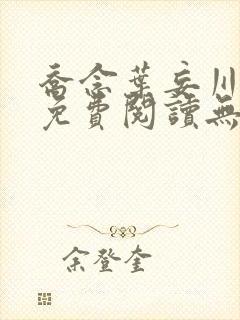 喬念葉妄川
免費閱讀無
余登奎